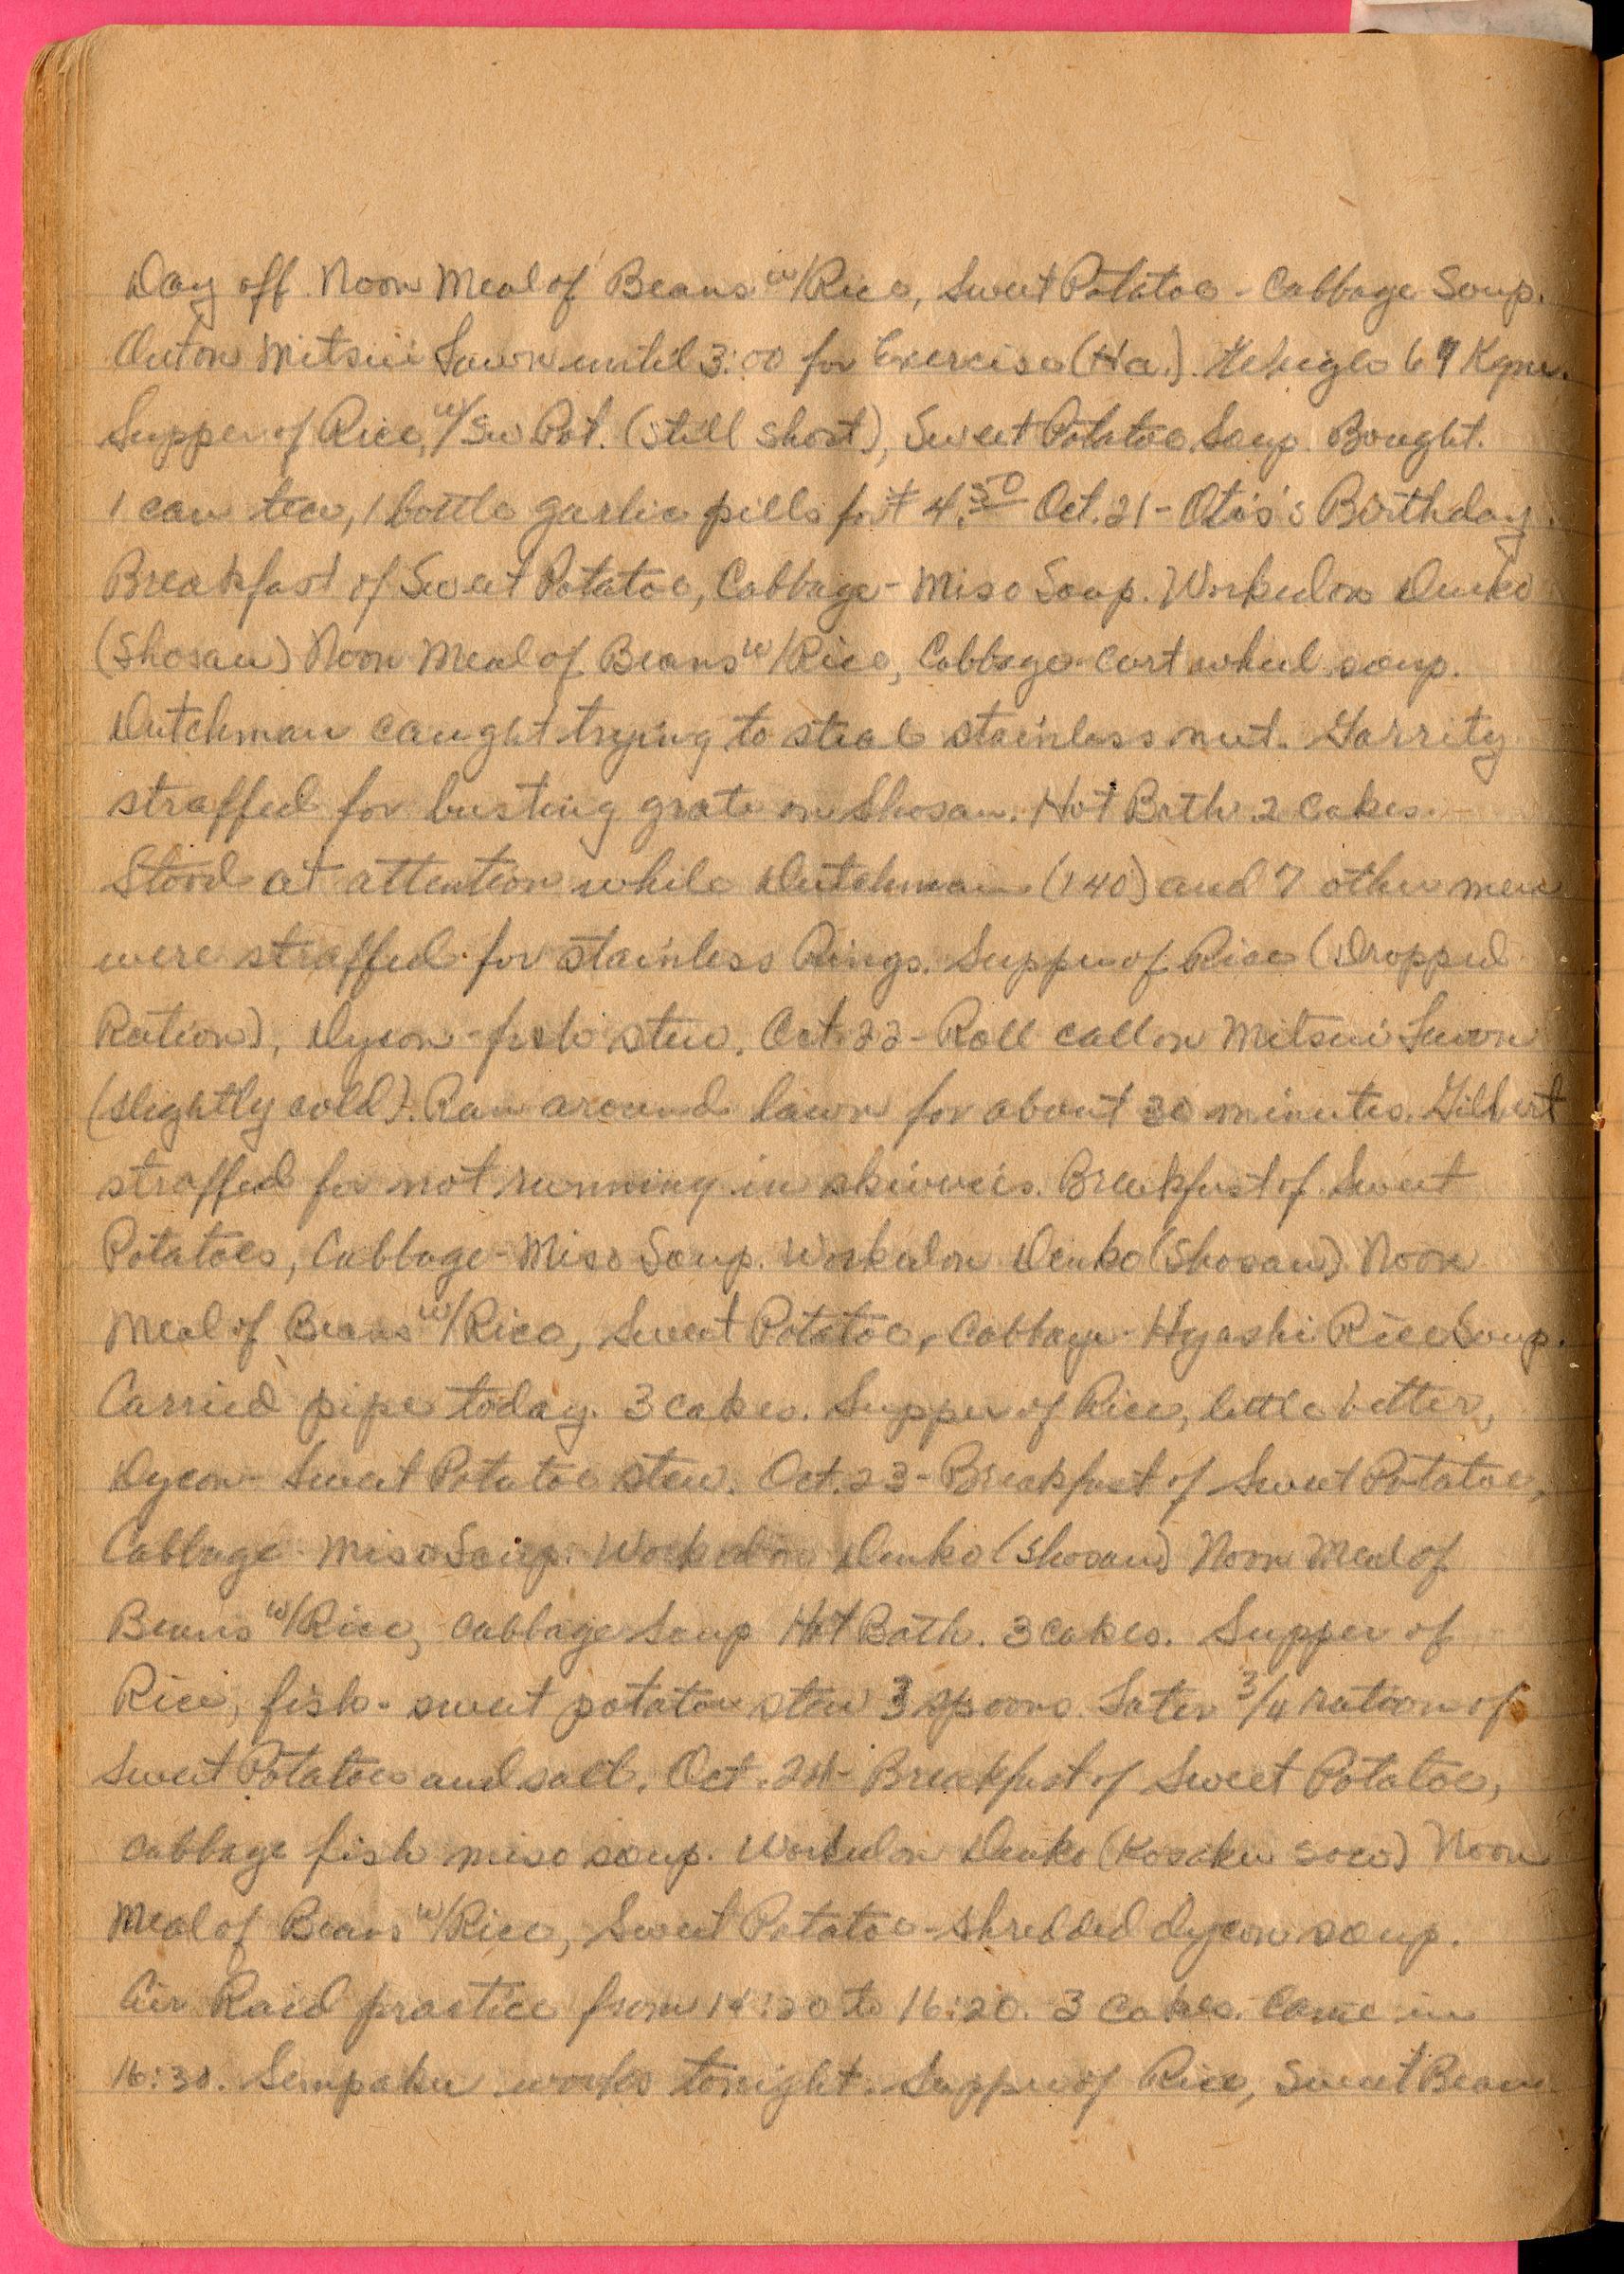 Day off. Noon Meal of Beans w/Rice, Sweet Potatoe - Cabbage Soup.
Out on Mitsui Lawn until 3:00 for Exercise (Ha.). Weighs 69 Kgm.
Supper of Rice, w/Sw Pot. (still short), Sweet Potatoe Soup. Bought.
1 can tea, 1 bottle garlic pills for 4.50 Oct. 21 - Otis's Birthday.
Breakfast of Sweet Potatoe, Cabbage - Miso Soup. Worked on Denko
(Shosan) Noon Meal of Beans w/Rice, Cabbage cart wheel soup.
Dutchman caught trying to steal stainless nut. Garrity
straffed for busting grate on Shosan. Hot Bath. 2 Cakes.
Stood at attention while Dutchman (140) and 7 other men
were straffed for stainless Rings. Supper of Rice (Dropped
Ration), Dycon - fish stew. Oct. 22 - Roll call on Mitsui Lawn
(slightly cold). Ran around lawn for about 30 minutes. Gilbert
straffed for not running in skivvies. Breakfast of Sweet
Potatoes, Cabbage - Miso Soup. Worked on Denko (Shosan) Noon
Meal of Beans w/Rice, Sweet Potatoe, Cabbage - Hyashi Rice Soup.
Carried pipe today. 3 cakes. Supper of Rice, little better,
Dycon - Sweet Potatoe stew. Oct. 23 - Breakfast of Sweet Potatoe,
Cabbage Miso Soup. Worked on Denko (Shosan) Noon Meal of
Beans w/Rice, Cabbage Soup Hot Bath. 3 cakes. Supper of
Rice, fish - sweet potatoe stew 3 spoons. Later 3/4 ration of
Sweet Potatoes and salt. Oct. 24 - Breakfast of Sweet Potatoe,
cabbage fish miso soup. Worked on Denko (Kosaku Soco) Noon
Meal of Beans w/Rice, Sweet Potatoe - shredded dycon soup.
Air Raid practice from 14:20 to 16:20. 3 Cakes. Came in
16:30. Sempaku works tonight. Supper of Rice, Sweet Bean